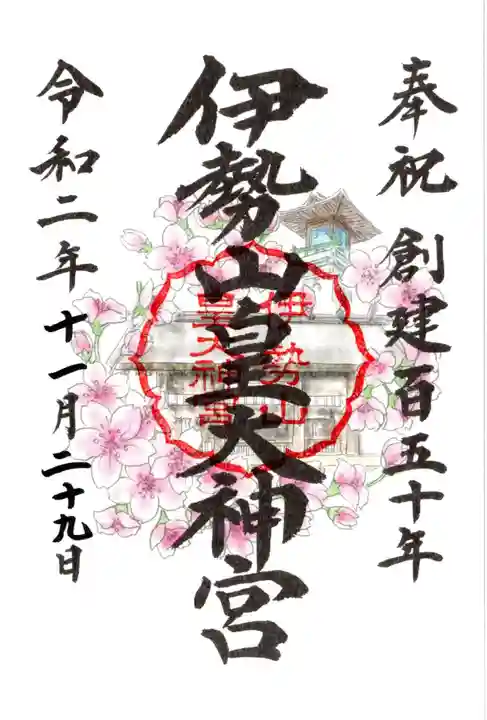 奉祝 創建百五十年
伊勢山皇大神宮
伊勢山
皇大神宮
令和二年十一月二十九日